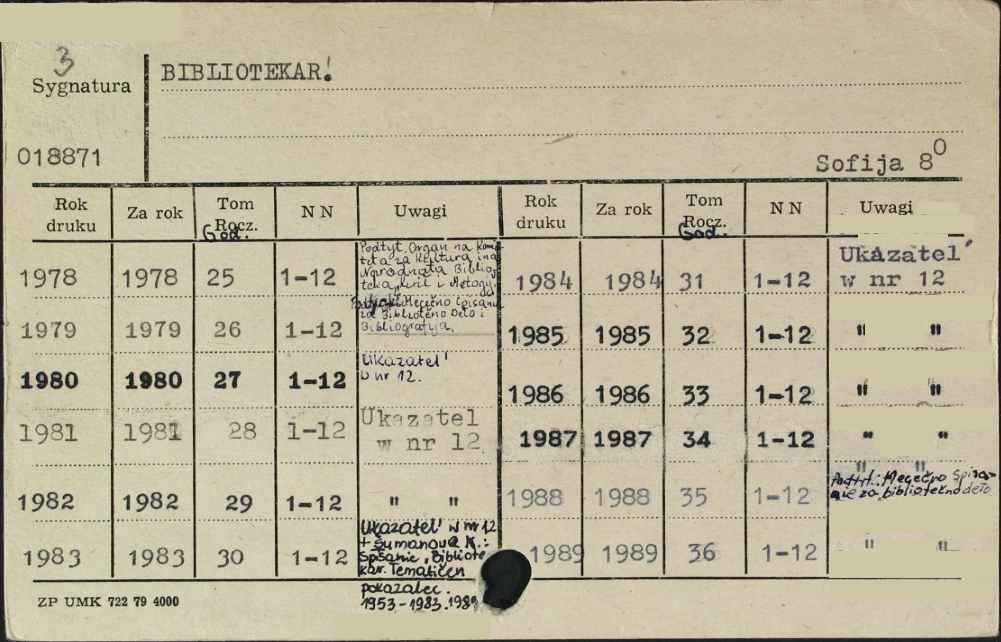 3
Sygnatura
018871
BIBLIOTEKAR!
Sofija 8⁰
Rok druku Za rok Tom Rocz. God. N N Uwagi
1978 1978 25 1-12 Podtyt. Organ na Kom
teta za Kultura i na
Narodnata Bibliq
teka Kiril i Metodij
1979 1979 26 1-12 Mesečno spisanie
za Bibliotečno Delo i
Bibliografija.
1980 1980 27 1-12 Ukazatel'
w nr 12.
1981 1981 28 1-12 Ukazatel
w nr 12
1982 1982 29 1-12 " "
1983 1983 30 1-12 Ukazatel' w nr 12
+ Šumanova K.:
Spisanie „Bibliote-
kar. Tematičen
pokazalec.
1953-1983. 1984
Rok druku Za rok Tom Rocz. God. N N Uwagi
1984 1984 31 1-12 Ukazatel'
w nr 12
1985 1985 32 1-12 " "
1986 1986 33 1-12 " "
1987 1987 34 1-12 " "
1988 1988 35 1-12 " "
Podtyt.: Mesečno spisa-
nie za bibliotečno delo
1989 1989 36 1-12 " "
ZP UMK 722 79 4000